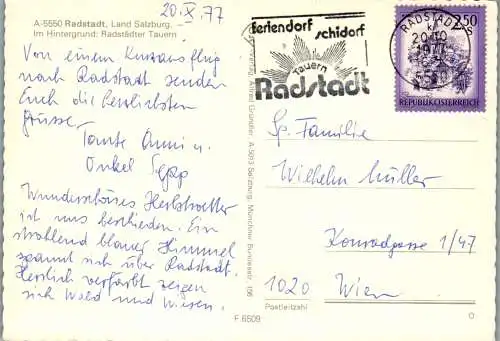 20.X.77
A-5550 Radstadt, Land Salzburg.
Im Hintergrund: Radstädter Tauern
Von einem Kurzausflug
nach Radstadt senden
Euch die herzlichsten
Grüsse
Tante Anni u.
Onkel Sepp
Wunderschönes Herbstwetter
ist uns beschieden. Ein
strahlend blauer Himmel
spannt sich über Radstadt.
Herrlich verfärbt zeigen
sich Wald und Wiesen.
F 6509
A-5013 Salzburg, Münchner Bundesstr. 196
feriendorf
schidorf
Tauern
Radstadt
RADSTADT
20.10
1977
5550
2.50
REPUBLIK ÖSTERREICH
Familie
Wilhelm Müller
Konradgasse 1/47
1020 Wien
Postleitzahl